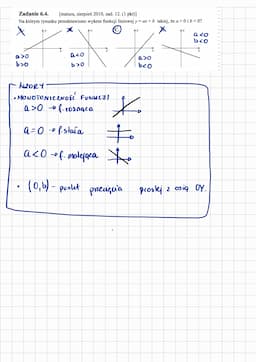 Zadanie 6.4. [matura, sierpień 2010, zad. 12. (1 pkt)]
Na którym rysunku przedstawiono wykres funkcji liniowej y = ax + b takiej, że a > 0 i b < 0?
a>0 b>0
a<0 b>0
a>0 b<0
a<0 b<0
WZORY
• MONOTONICZNOŚĆ FUNKCJI
a>0 → f. rosnąca
a=0 → f. stała
a<0 → f. malejąca
• (0,b) – punkt przecięcia prostej z osią OY.